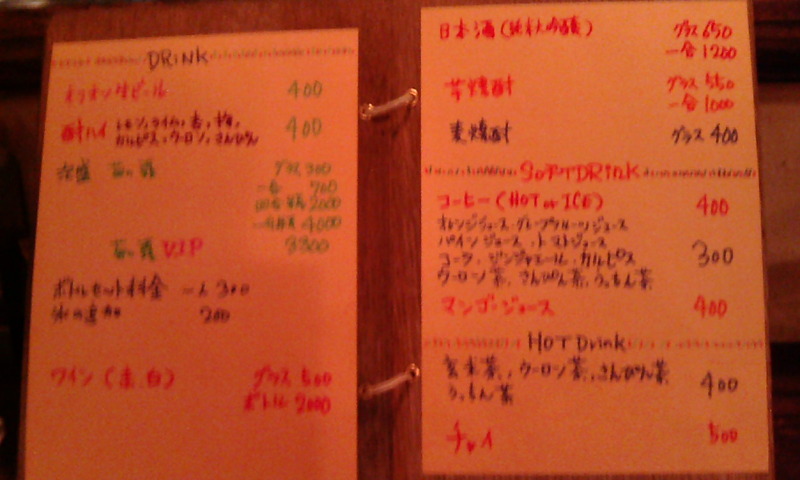 DRINK
オリオン生ビール 400
酎ハイ レモン、ライム、杏、梅、 400
カルピス、ウーロン、さんぴん
泡盛 グラス 300
一合 700
2000
4000
V.I.P 3300
ボトルセット料金 一人 300
氷の追加 200
ワイン (赤、白) グラス 500
ボトル 2000
日本酒 (純米大吟醸) グラス 650
一合 1200
芋焼酎 グラス 550
一合 1000
麦焼酎 グラス 400
SOFTDRINK
コーヒー (HOT or ICE) 400
オレンジジュース・グレープフルーツジュース
パインジュース、トマトジュース 300
コーラ・ジンジャエール・カルピス
ウーロン茶、さんぴん茶、うっちん茶
マンゴージュース 400
HOT Drink
玄米茶、ウーロン茶、さんぴん茶 400
うっちん茶
チャイ 500